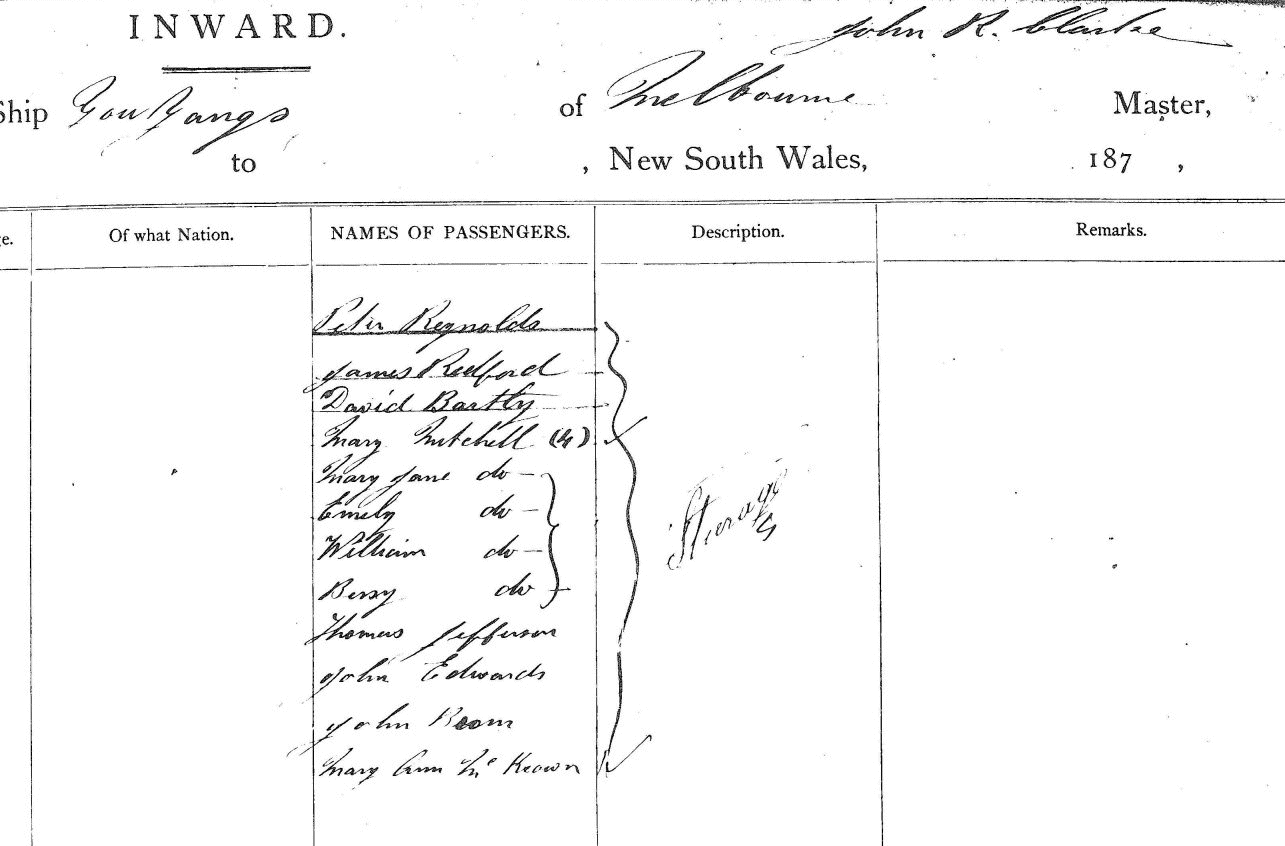 INWARD.
John R. Clarke
Ship You Yangs of Melbourne Master,
to , New South Wales, 187 ,
Of what Nation. NAMES OF PASSENGERS. Description. Remarks.
Peter Reynolds
James Redford
David Bartly
Mary Mitchell (4)
Mary Jane do
Emely do
William do
Bessy do
Steerage
Thomas Jefferson
John Edwards
John
Mary Ann McKeown